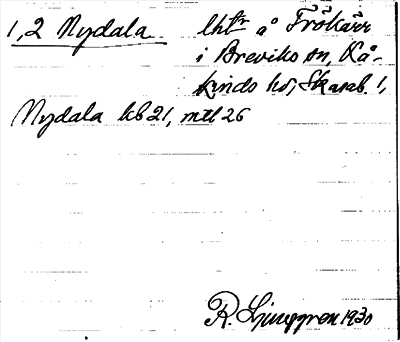 1,2 Nydala lhtr å Trökärr
i Breviks sn, Kå-
kinds hd, Skarab. l,
Nydala kb 21, mtl 26
R. Ljunggren 1930